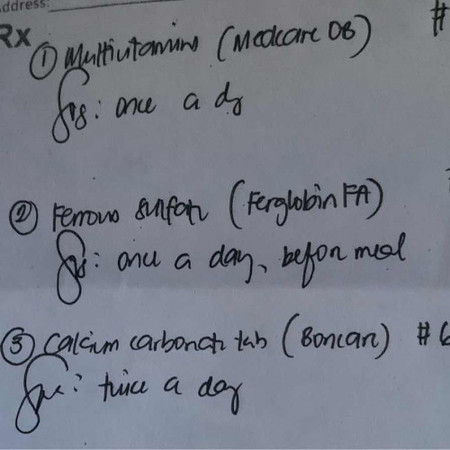 Address:
Rx
① Multivitamins (Medcare OB) #
Sig: once a dy
② Ferrous sulfate (Ferglobin FA)
Sig: once a day, before meal
③ Calcium carbonate tab (Boncare) # 6
Sig: twice a day